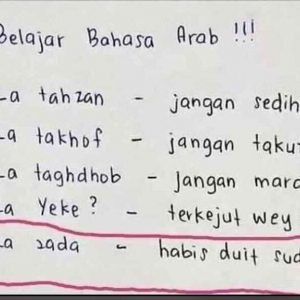 Belajar Bahasa Arab !!!
La tahzan - jangan sedih
La takhof - jangan takut
La taghdhob - Jangan mara
La Yeke? - terkejut wey
La zada - habis duit sud